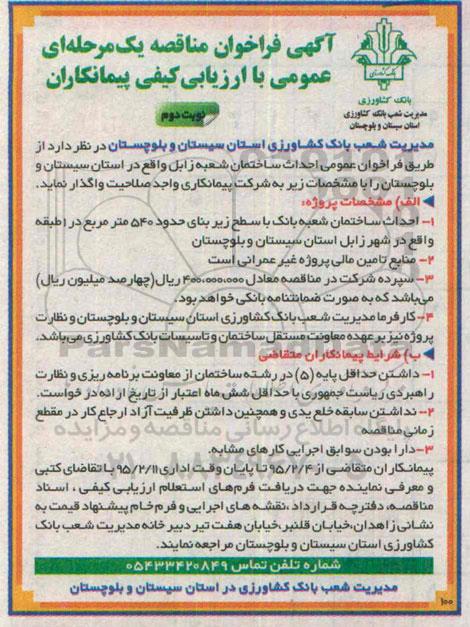 آگهی فراخوان مناقصه یک‌مرحله‌ای
عمومی با ارزیابی کیفی پیمانکاران
بانک کشاورزی
مدیریت شعب بانک کشاورزی
استان سیستان و بلوچستان
نوبت دوم
مدیریت شعب بانک کشاورزی استان سیستان و بلوچستان در نظر دارد از
طریق فراخوان عمومی احداث ساختمان شعبه زابل واقع در استان سیستان و
بلوچستان را با مشخصات زیر به شرکت پیمانکاری واجد صلاحیت واگذار نماید.
الف) مشخصات پروژه:
۱- احداث ساختمان شعبه بانک با سطح زیر بنای حدود ۵۴۰ متر مربع در ۱ طبقه
واقع در شهر زابل استان سیستان و بلوچستان
۲- منابع تامین مالی پروژه غیر عمرانی است
۳- سپرده شرکت در مناقصه معادل ۴۰۰،۰۰۰،۰۰۰ ریال (چهارصد میلیون ریال)
می‌باشد که به صورت ضمانتنامه بانکی خواهد بود.
۴- کارفرما مدیریت شعب بانک کشاورزی استان سیستان و بلوچستان و نظارت
پروژه نیز بر عهده معاونت مستقل ساختمان و تاسیسات بانک کشاورزی می‌باشد.
ب) شرایط پیمانکاران متقاضی
۱- داشتن حداقل پایه (۵) در رشته ساختمان از معاونت برنامه ریزی و نظارت
راهبردی ریاست جمهوری با حداقل شش ماه اعتبار از تاریخ ارائه درخواست.
۲- نداشتن سابقه خلع یدی و همچنین داشتن ظرفیت آزاد ارجاع کار در مقطع
زمانی مناقصه
۳- دارا بودن سوابق اجرایی کارهای مشابه.
پیمانکاران متقاضی از ۹۵/۲/۴ تا پایان وقت اداری ۹۵/۲/۱۱ با تقاضای کتبی
و معرفی نماینده جهت دریافت فرم‌های استعلام ارزیابی کیفی ، اسناد
مناقصه، دفترچه قرارداد ،نقشه های اجرایی و فرم خام پیشنهاد قیمت به
نشانی زاهدان،خیابان قلنبر،خیابان هفت تیر دبیر خانه مدیریت شعب بانک
کشاورزی استان سیستان و بلوچستان مراجعه نمایند.
شماره تلفن تماس ۰۵۴۳۳۴۲۰۸۴۹
مدیریت شعب بانک کشاورزی در استان سیستان و بلوچستان
۱۰۰